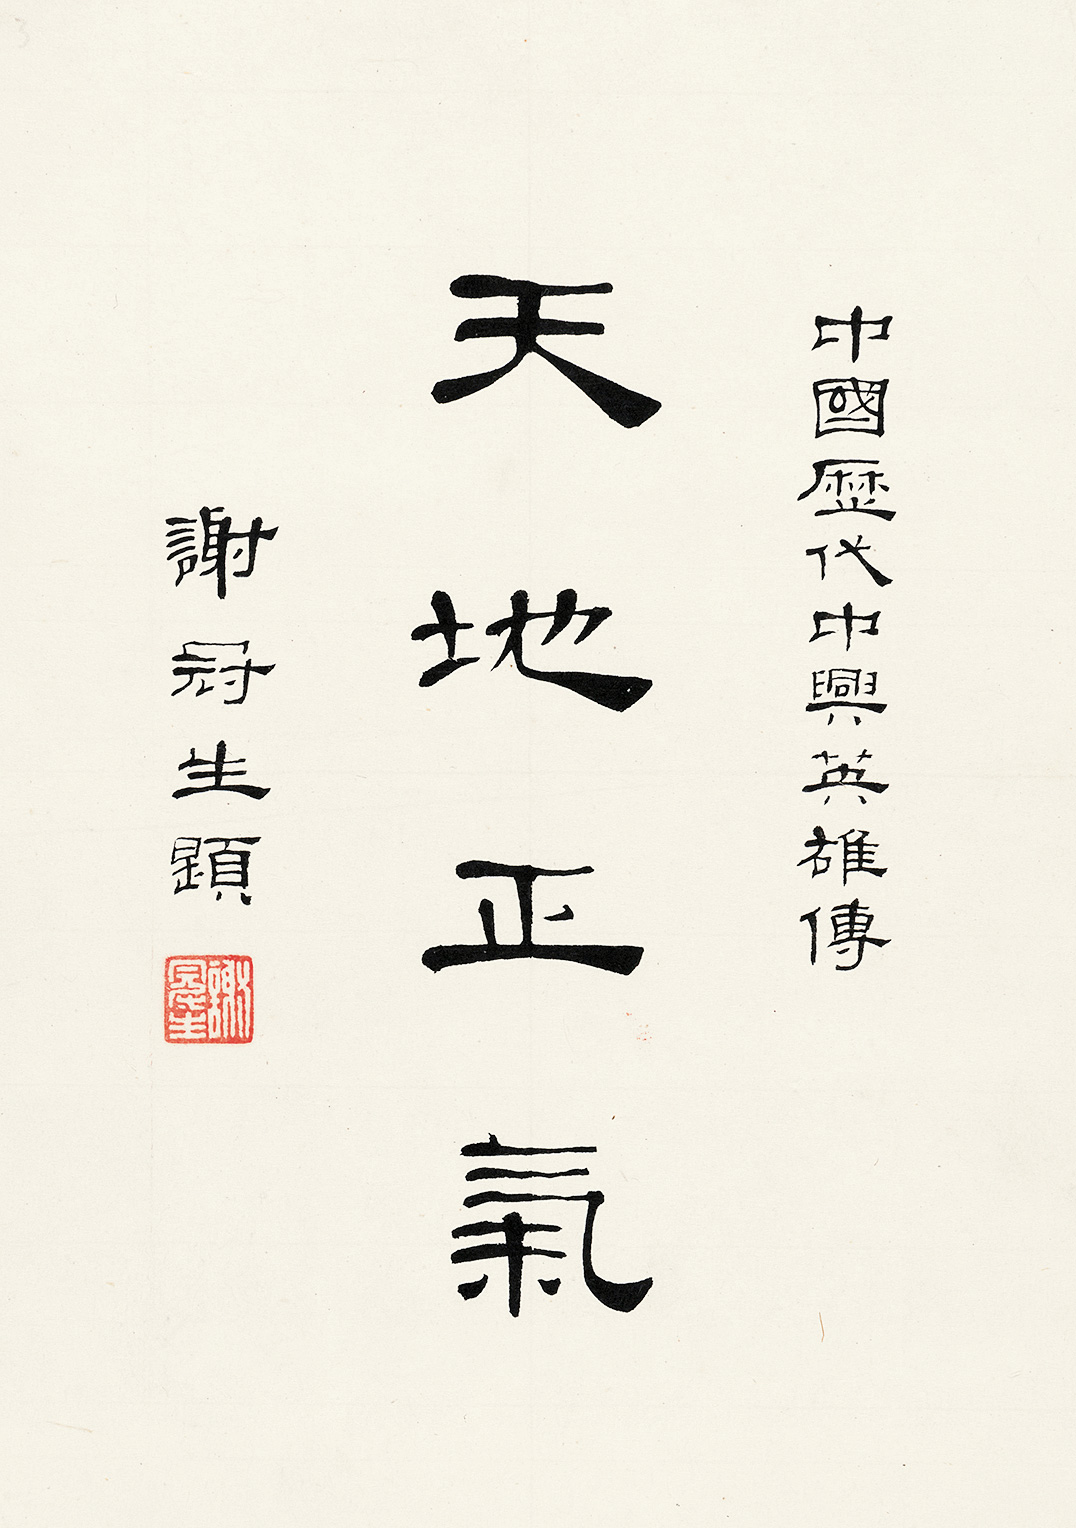 中國歷代中興英雄傳
天地正氣
謝冠生題
謝冠生